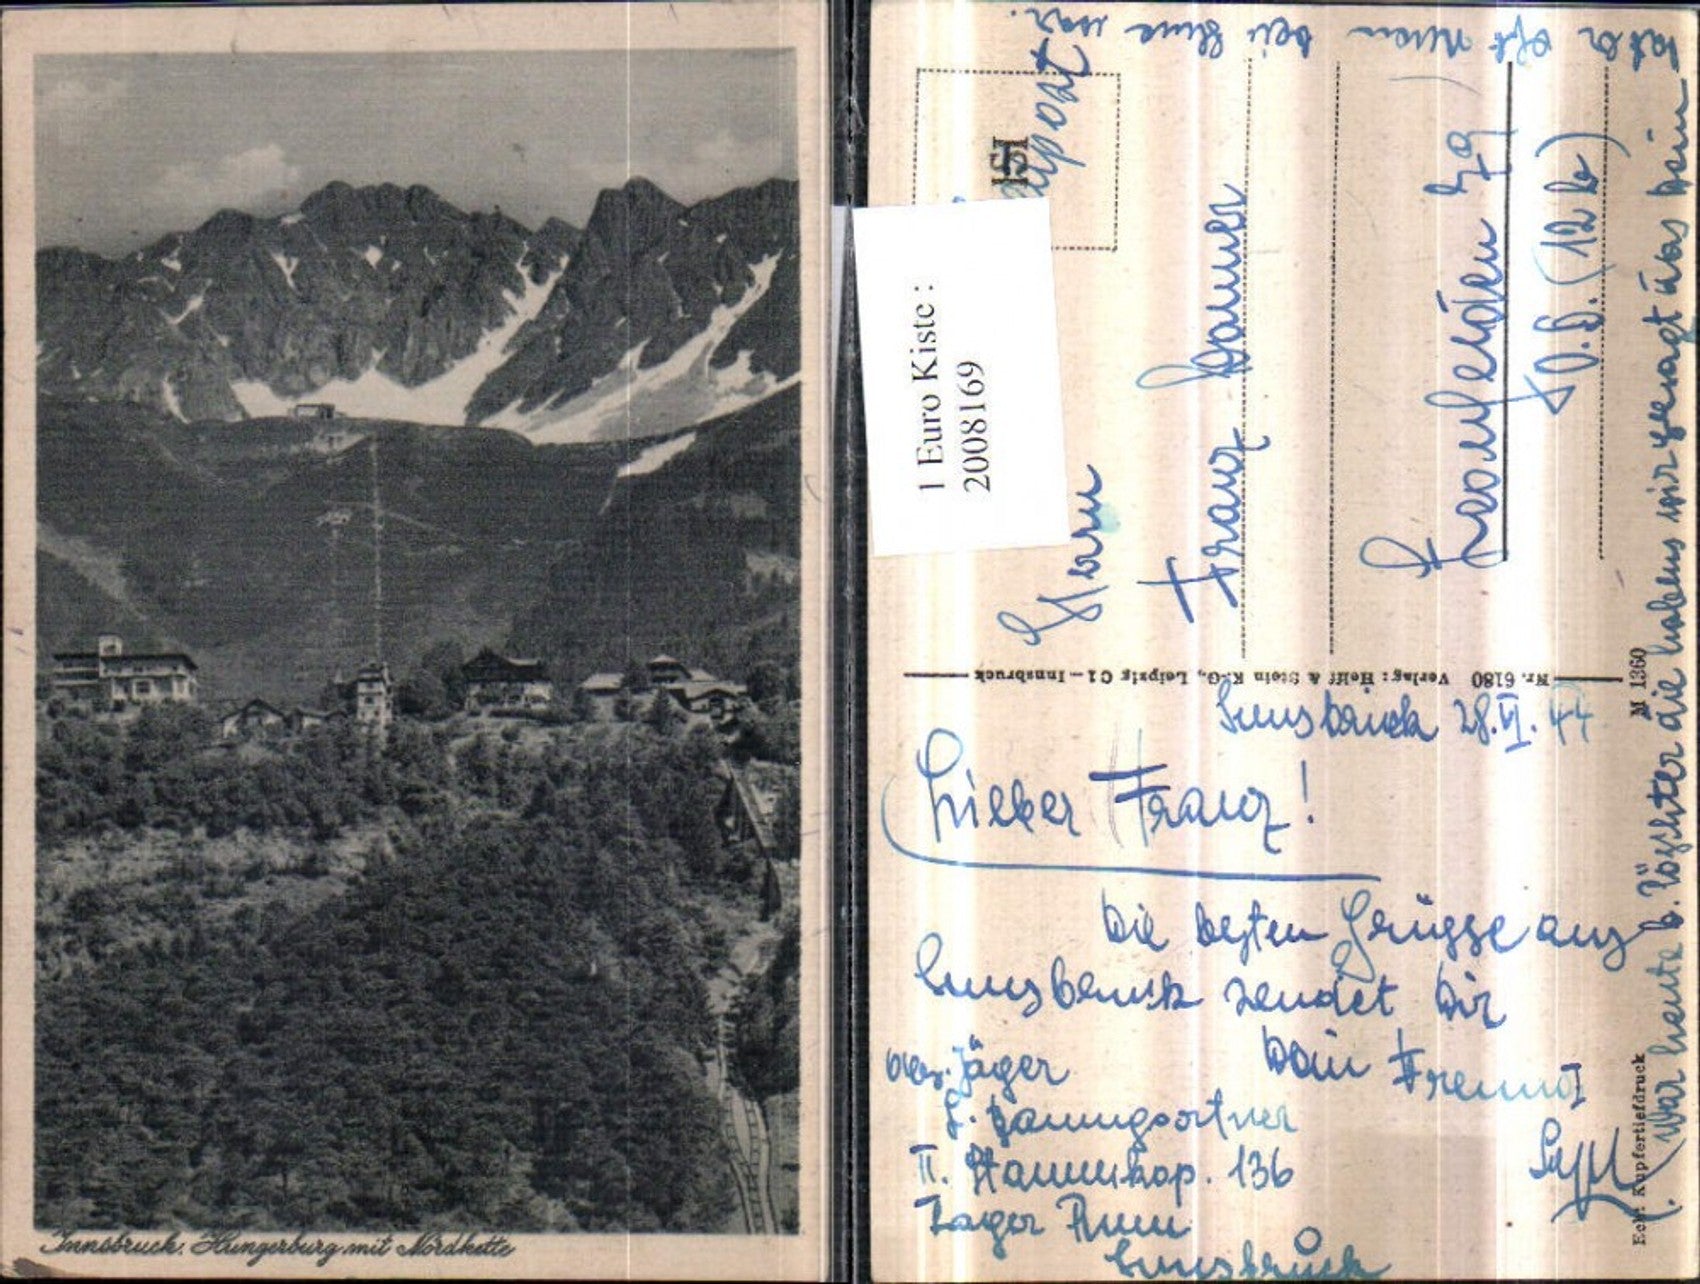 Innsbruck, Hungerburg mit Nordkette
1 Euro Kiste :
2008169
Herrn
Franz
(12 b)
Nr. 6180 Verlag: Helff & Stein K.-G., Leipzig C 1 – Innsbruck
M 1360
Echt Kupfertiefdruck
Innsbruck 28.VI.44
Lieber Franz!
Die besten Grüsse aus
Innsbruck sendet Dir
Dein Freund
Sepp
Jäger
Baumgartner
II. Stammkop. 136
Lager
Innsbruck
(War heute b. die haben mir gesagt das Dein
Vater oft bei Ihne war.